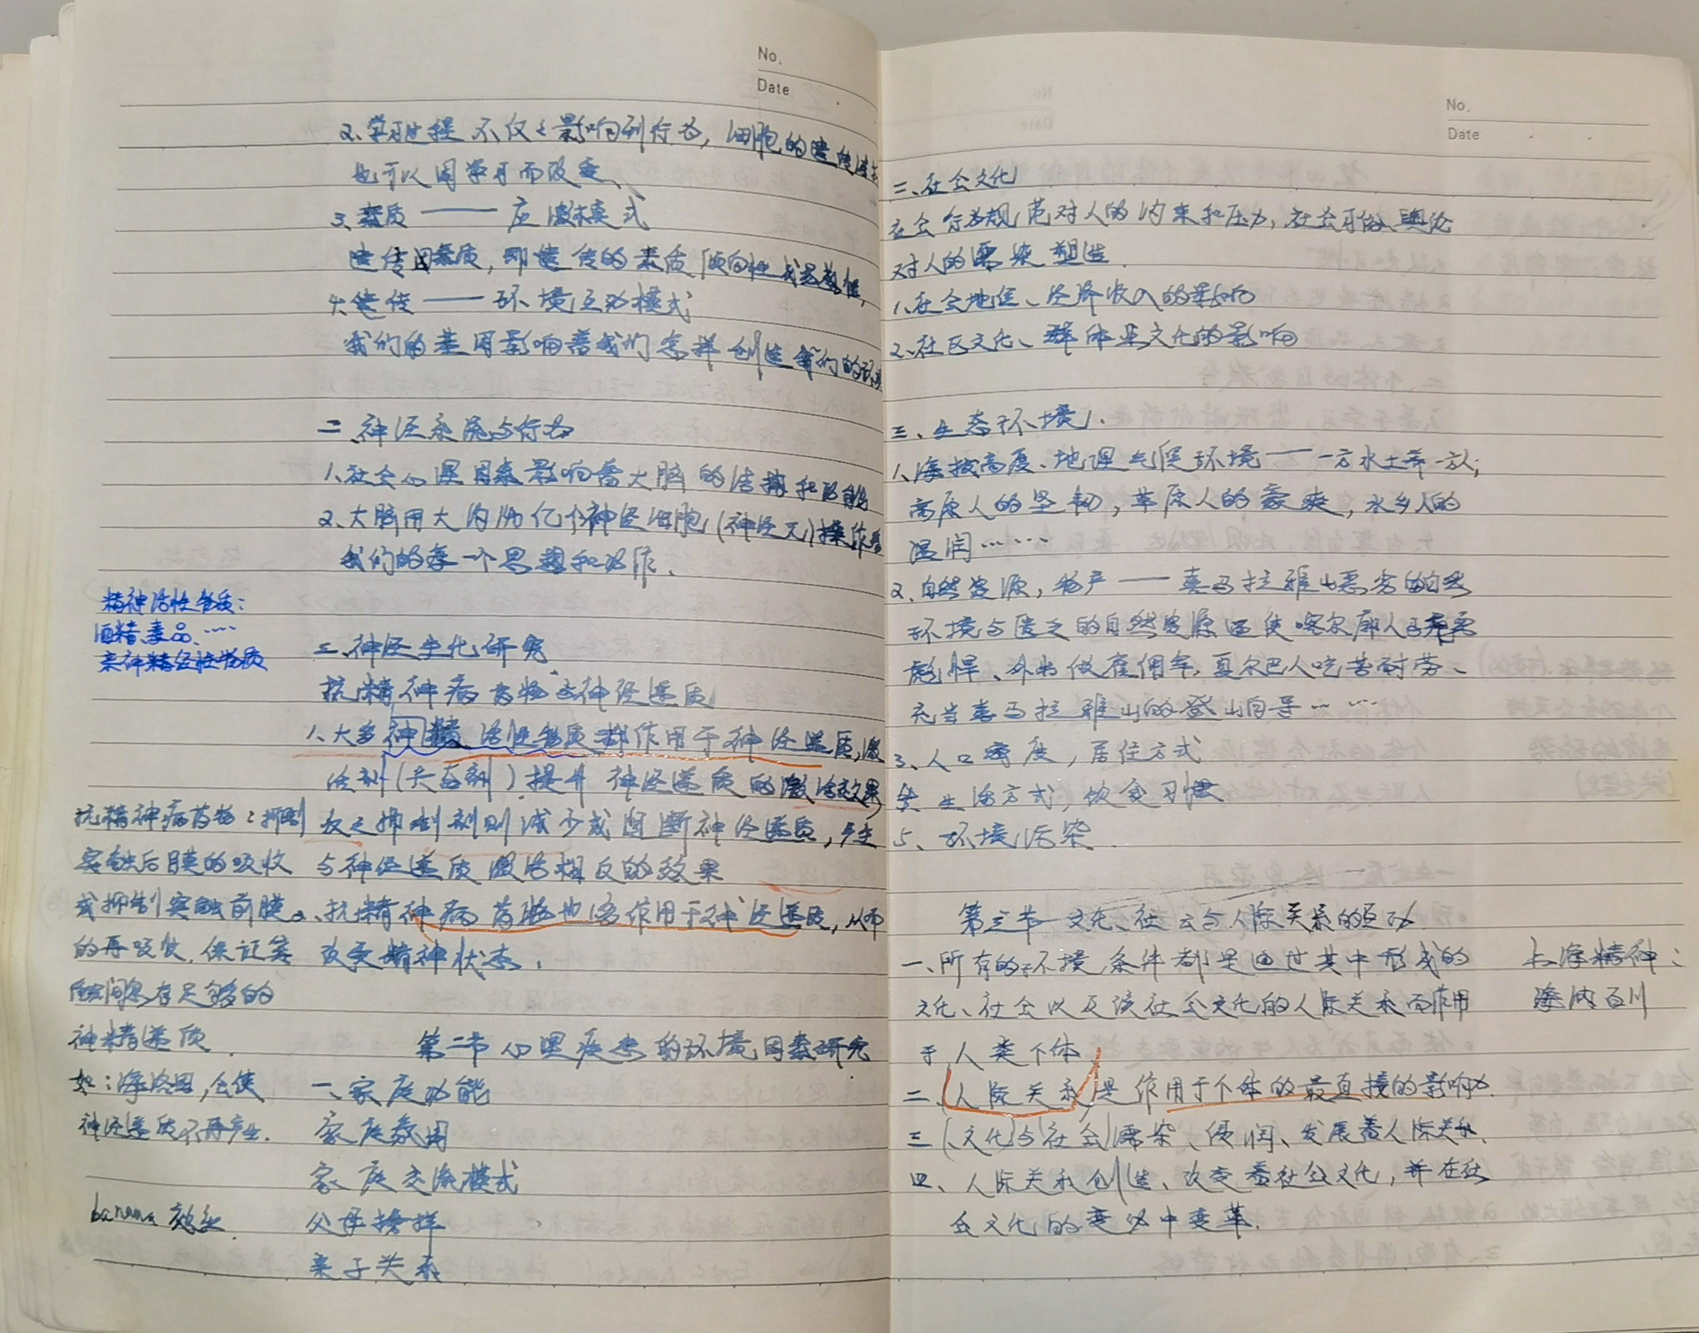 No.
Date
2、学习过程不仅仅影响到行为,细胞的遗传
也可以因学习而改变、
3、素质——应激模式
遗传因素质,即遗传的素质倾向性或易感性,
4、遗传——环境互动模式
我们的基因影响着我们怎样创造我们的环境
二、神经系统与行为
1、社会心理因素影响着大脑的结构和功能
2、大脑用大约 亿个神经细胞(神经元)操作着
我们的每一个思想和动作、
精神活性物质:
酒精、毒品、……
亲神精经性物质
三、神经生化研究
抗精神病药物与神经递质
1、大多神精活性物质都作用于神经递质,激
活剂( )提升神经递质的激活效果
反之抑制剂则减少或阻断神经递质,产生
与神经递质激活相反的效果
2、抗精神病药物也将作用于神经递质,从而
改变精神状态、
抗精神病药物:抑制
突触后膜的吸收
或抑制突触前膜
的再吸收,保证突
触间隙有足够的
神精递质
如:海洛因,会使
神经递质不再产生.
第二节 心理疾患的环境因素研究
一、家庭功能
家庭教
家庭交流模式
banana
父母榜样
亲子关系
No.
Date
二、社会文化
社会行为规范对人的约束和压力,社会习俗、舆论
对人的濡染塑造.
1、社会地位、经济收入的影响
2、社区文化、群体 文化的影响
三、生态环境
1、海拔高度、地理气候环境——一方水土养一方人;
高原人的坚韧,草原人的豪爽,水乡人的
温润……
2、自然资源,物产——喜马拉雅山恶劣的自然
环境与匮乏的自然资源迫使喀尔廓人
彪悍、外出做雇佣军,夏尔巴人吃苦耐劳、
充当喜马拉雅山的登山向导……
3、人口密度,居住方式
生活方式,饮食习惯
5、环境污染
第三节 文化、社会与人际关系的互动
一、所有的环境条件都是通过其中形成的
文化、社会以及该社会文化的人际关系而作用
于人类个体
上海精神:
海纳百川
二、人际关系是作用于个体的最直接的影响力.
三(文化与社会)濡染、侵润、发展着人际关系、
四、人际关系创造、改变着社会文化,并在社
会文化的变动中变革.